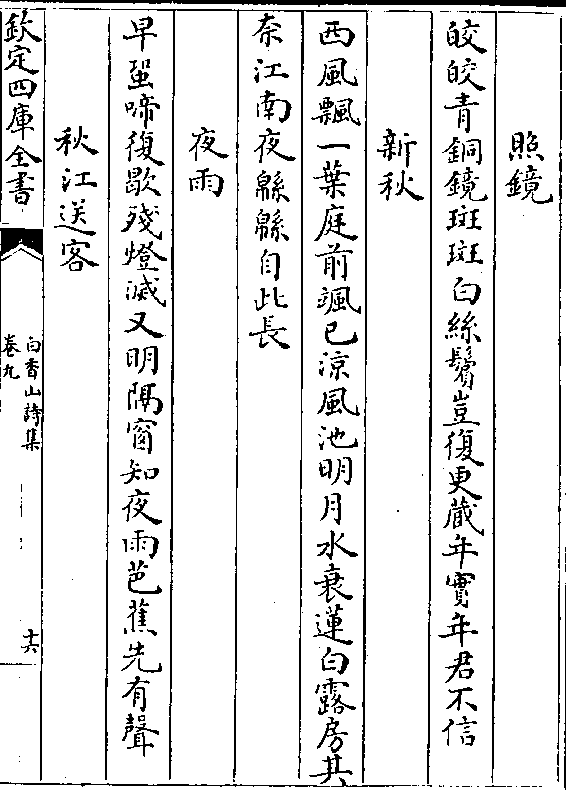 照鏡
皎皎青銅鏡斑斑白絲鬢豈復更藏年實年君不信
新秋
西風飄一葉庭前颯已涼風池明月水衰蓮白露房其
奈江南夜緜緜自此長
夜雨
早蛩啼復歇殘燈滅又明隔窗知夜雨芭蕉先有聲
秋江送客
欽定四庫全書
白香山詩集
卷九
十六